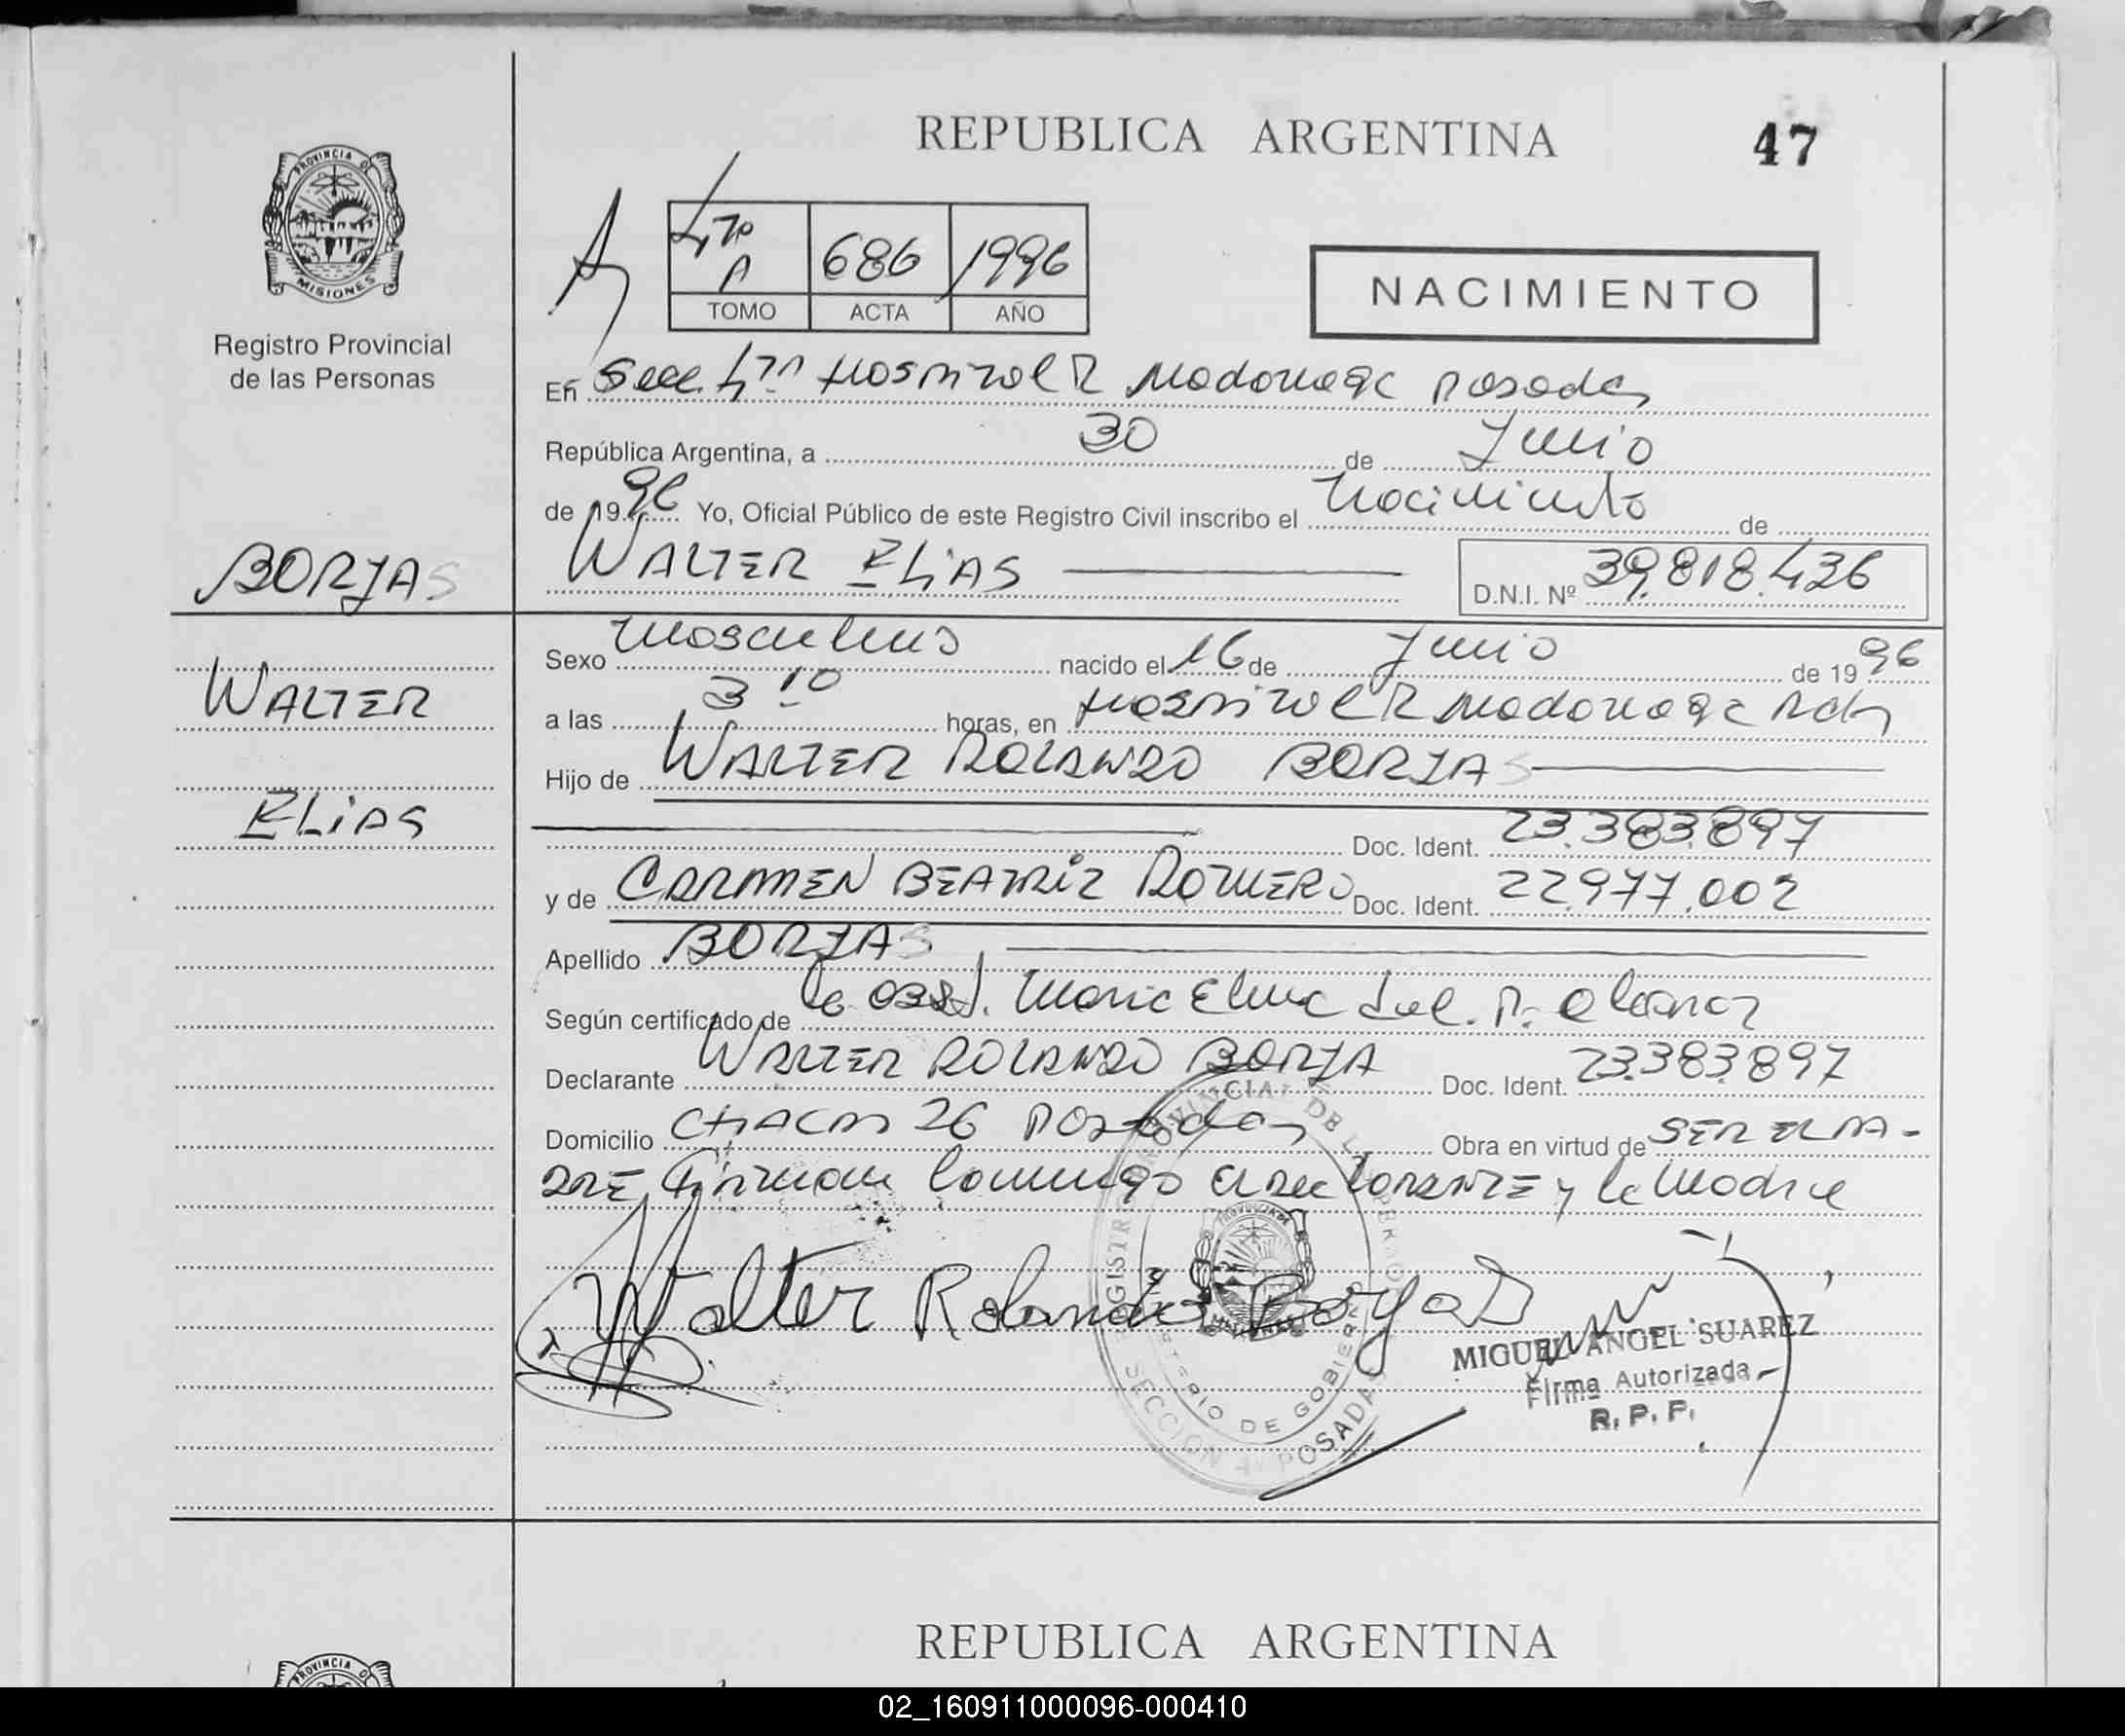 REPUBLICA ARGENTINA
47
PROVINCIA DE
MISIONES
Registro Provincial
de las Personas
4ta A 686 1996
TOMO ACTA AÑO
NACIMIENTO
En Secc 4ta Hospital R Madariaga Posadas
República Argentina, a 30 de Junio
de 1996 Yo, Oficial Público de este Registro Civil inscribo el Nacimiento de
WALTER ELIAS
D.N.I. Nº 39.818.436
BORJAS
WALTER
ELIAS
Sexo Masculino nacido el 16 de Junio de 1996
a las 3 10 horas, en Hospital R Madariaga Pdas
Hijo de WALTER ROLANDO BORJAS
Doc. Ident. 23.383.897
y de CARMEN BEATRIZ ROMERO Doc. Ident. 22.977.002
Apellido BORJAS
Según certificado de la obst. Maria Elena del P. Alcaraz
Declarante WALTER ROLANDO BORJA Doc. Ident. 23.383.897
Domicilio CHACRA 26 Posadas Obra en virtud de SER EL PA-
DRE Firman conmigo el declarante y la Madre
Walter Rolando Borjas
MIGUEL ANGEL SUAREZ
Firma Autorizada
R. P. P.
SECCION POSADAS
REPUBLICA ARGENTINA
PROVINCIA DE
02_160911000096-000410